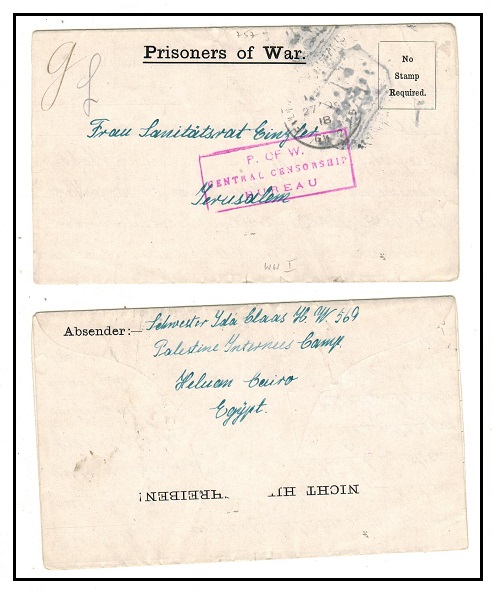 757
Prisoners of War.
No
Stamp
Required.
27
18
Frau Sanitätsrat Einszler
P. OF W.
CENTRAL CENSORSHIP
BUREAU
Jerusalem
WW I
Absender:— Schwester Ida Claas H. W. 569
Palestine Internees Camp.
Heluan Cairo
Egÿpt.
NICHT HI HREIBEN!